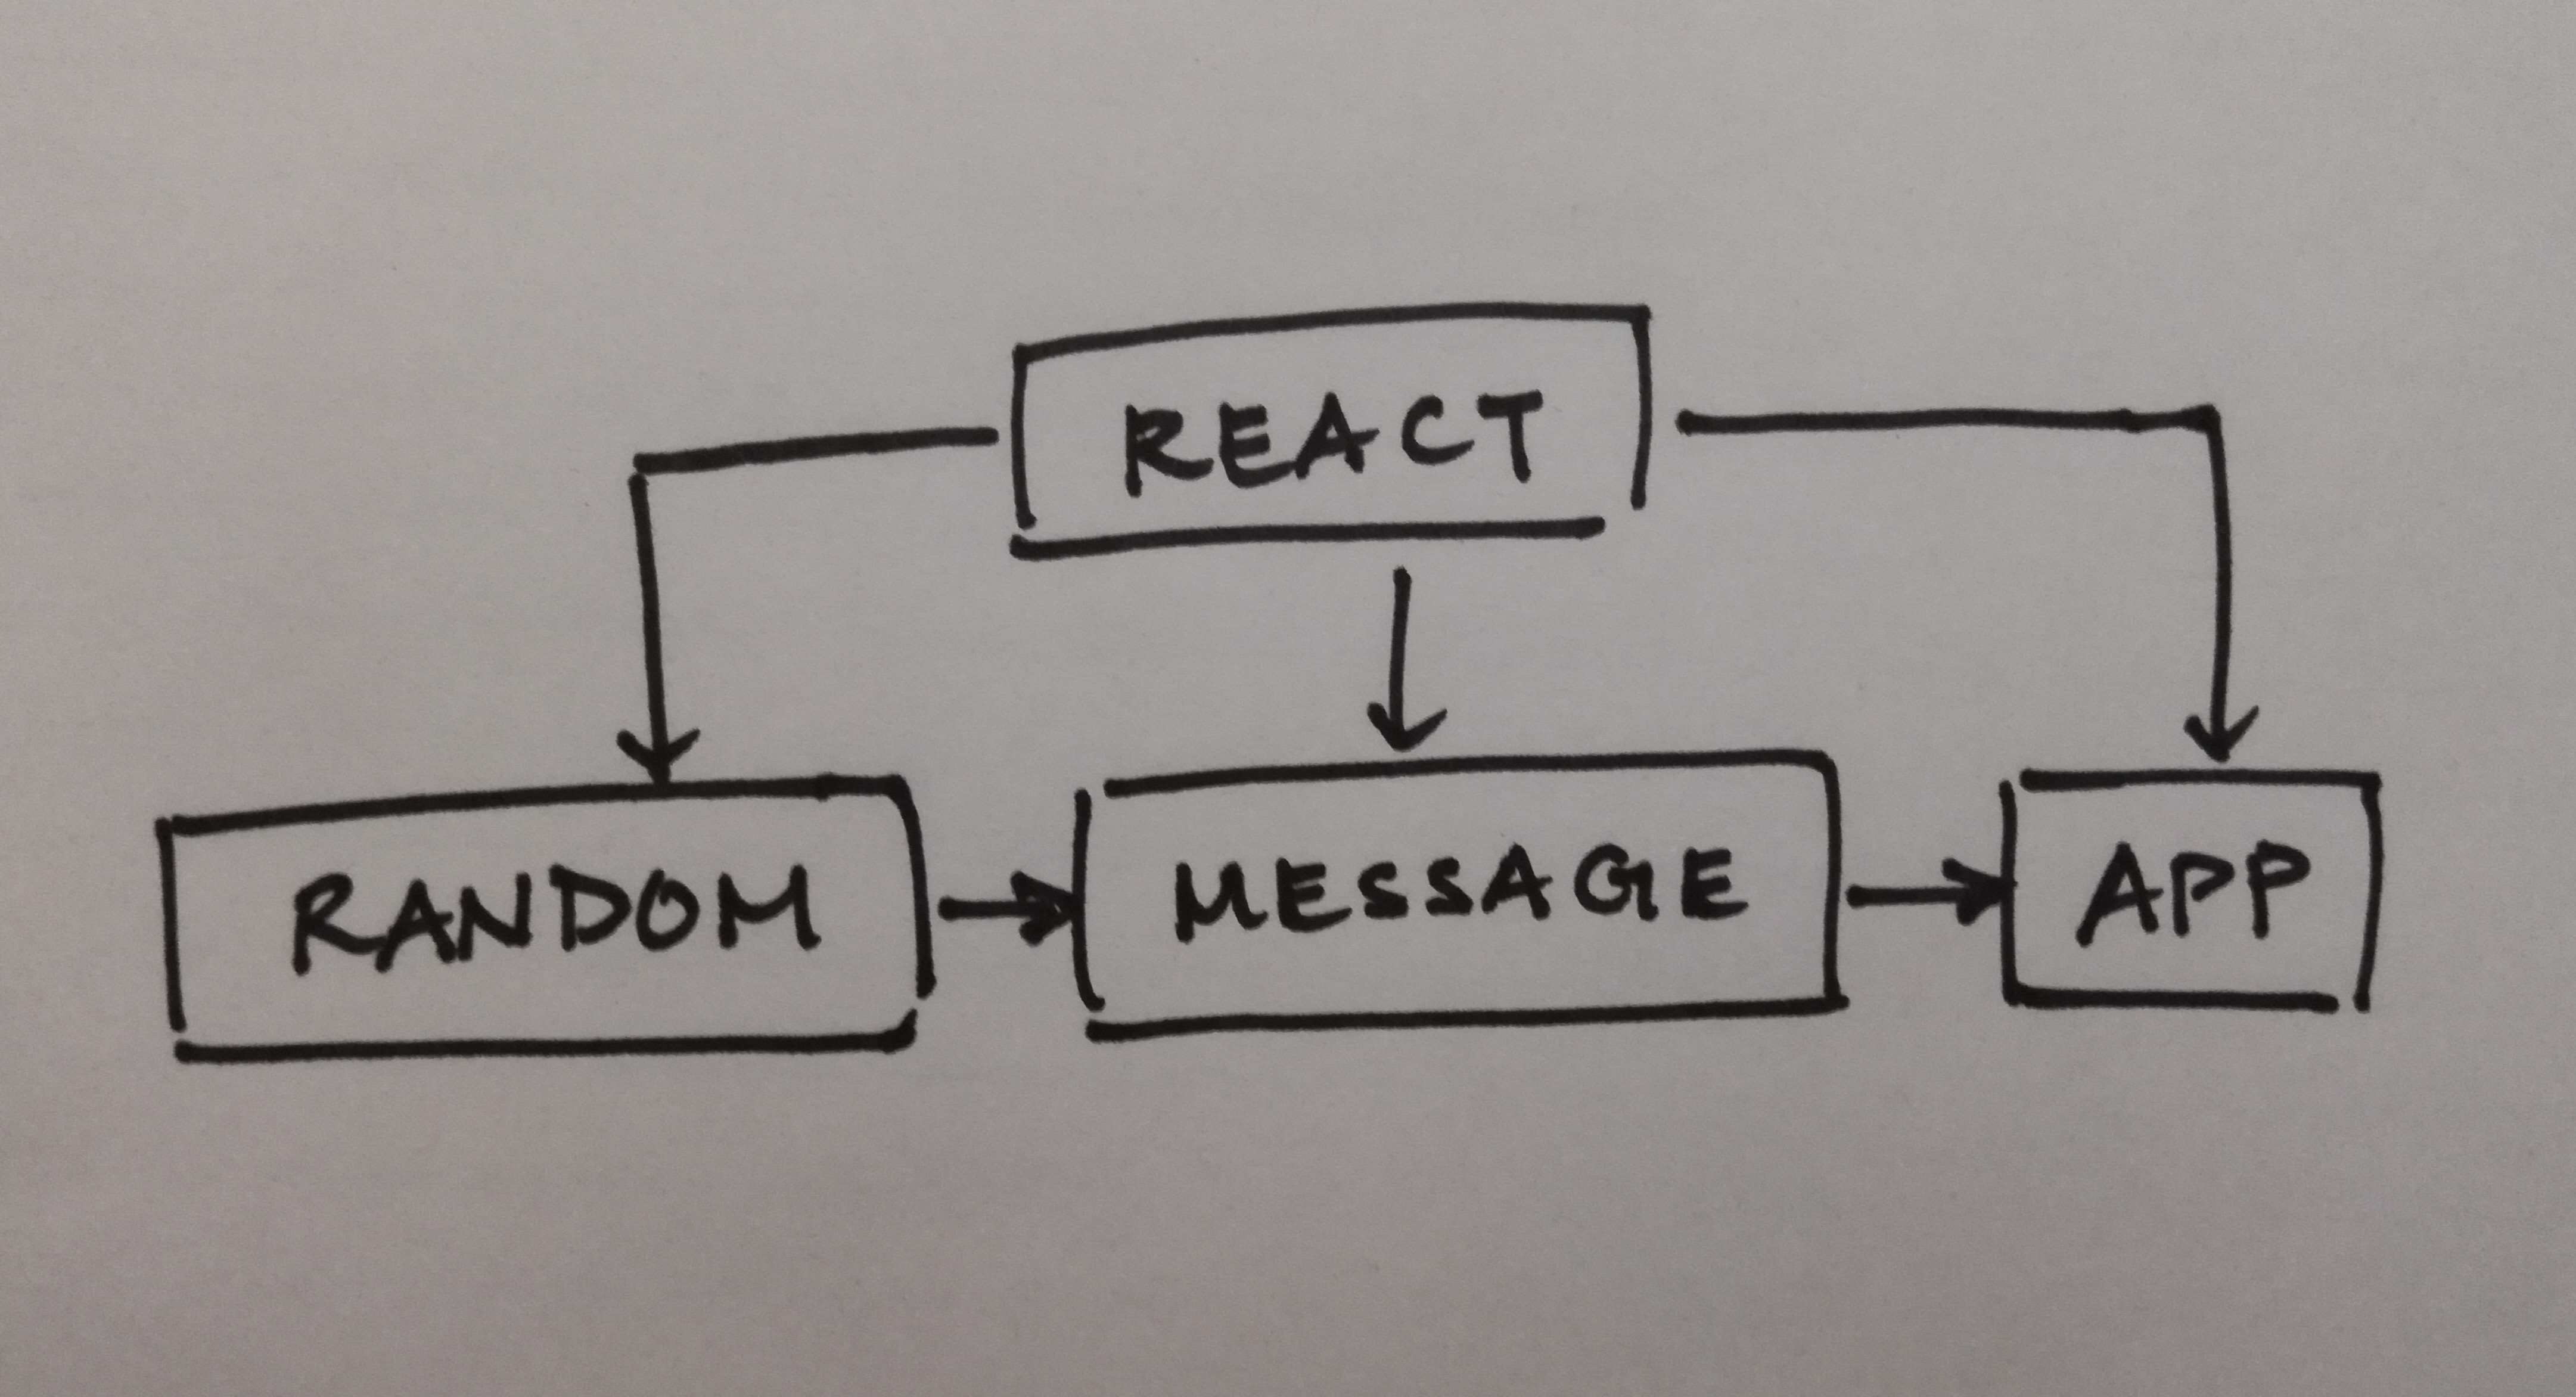 REACT
RANDOM
MESSAGE
APP